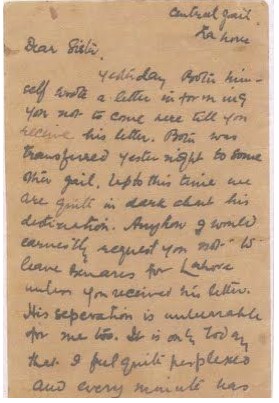 Central Jail.
Lahore
Dear Sister,
Yesterday Bottu him-
self wrote a letter informing
you not to come here till you
receive his letter. Bottu was
transferred yester night to some
other jail. Upto this time we
are quite in dark about his
destination. Anyhow I would
earnestly request you not to
leave Benares for Lahore
unless you received his letter.
His seperation is unbearable
for me too. It is only today
that I feel quite perplexed
and every minute has